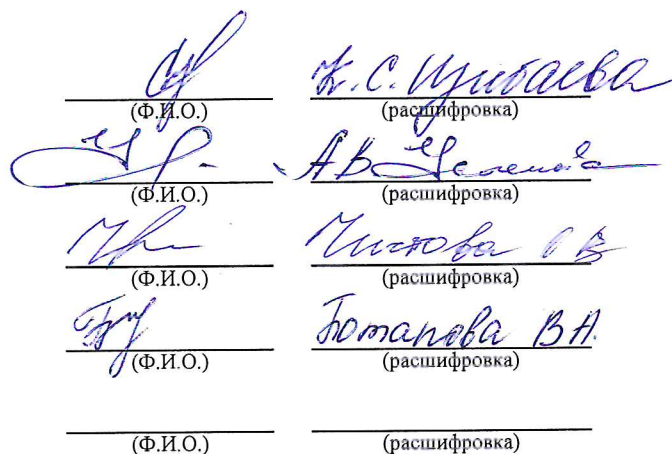 К.С. Щибаева
(Ф.И.О.) (расшифровка)
А.В.
(Ф.И.О.) (расшифровка)
Чистова О В
(Ф.И.О.) (расшифровка)
Ботапова В.А.
(Ф.И.О.) (расшифровка)
(Ф.И.О.) (расшифровка)